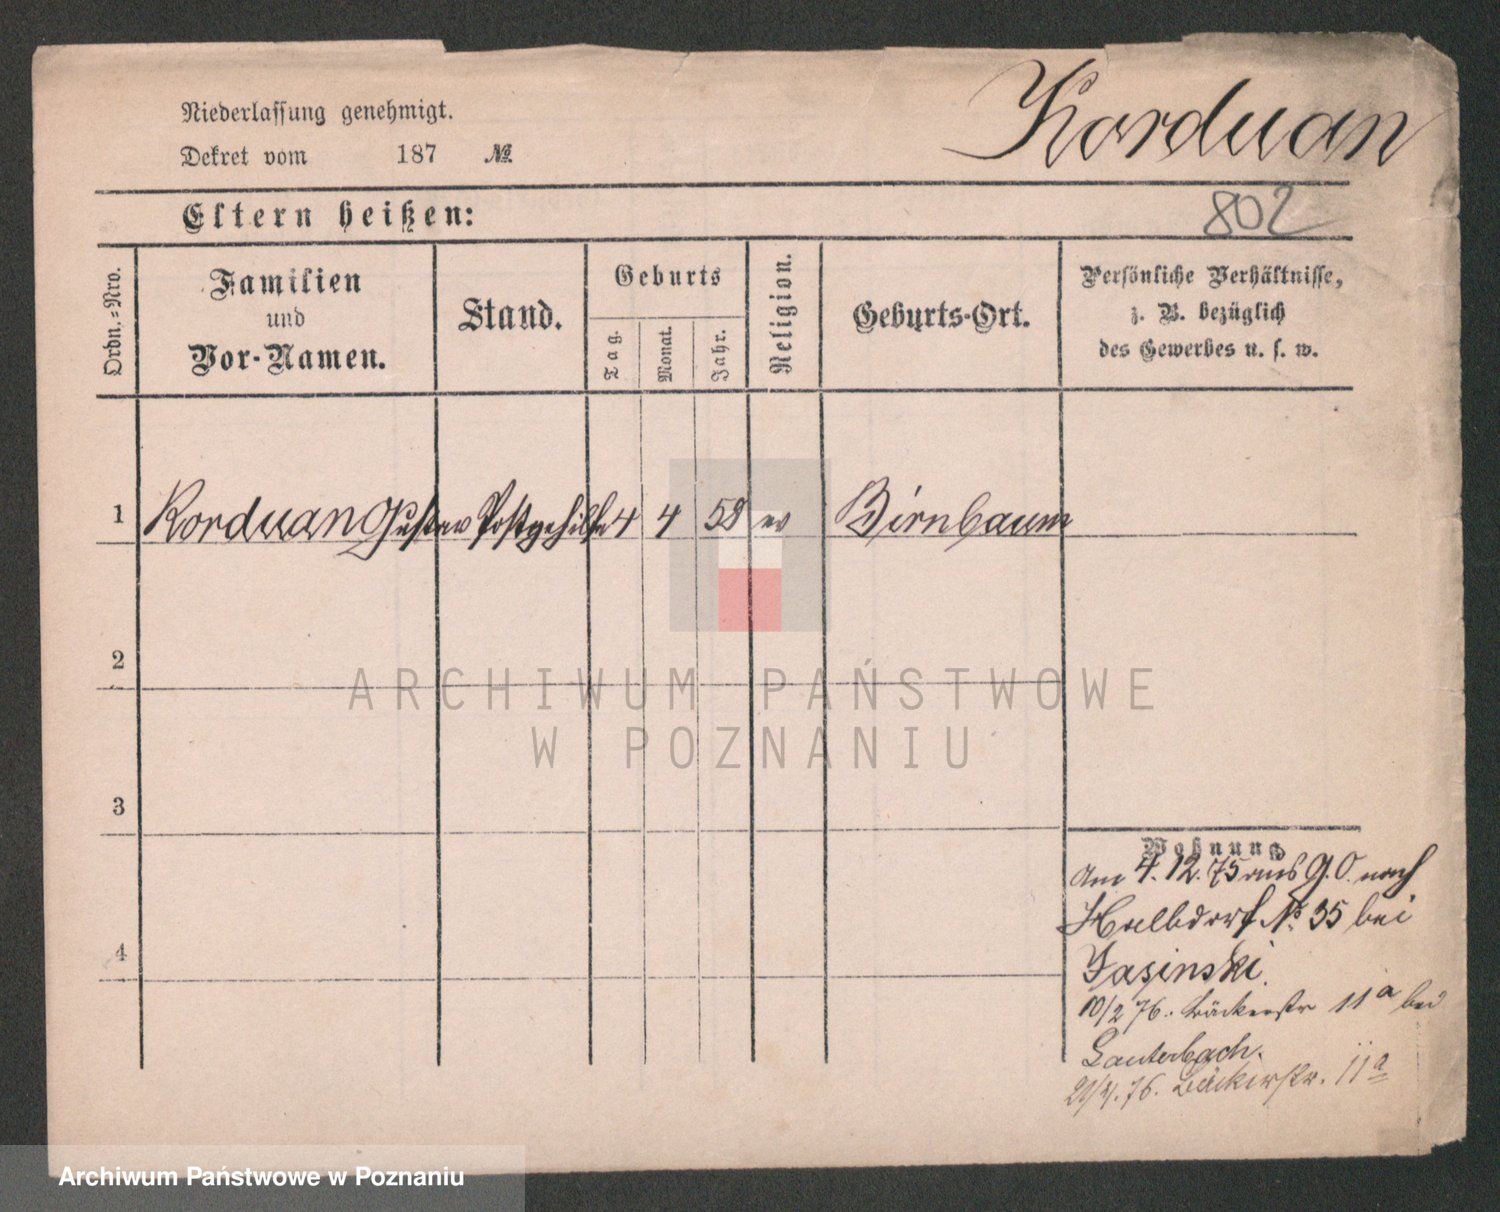 Korduan
Niederlassung genehmigt.
Dekret vom 187 №
802
Eltern heißen:
Ordn.=Nro.
Familien
und
Vor-Namen.
Stand.
Geburts
Tag.
Monat.
Jahr.
Religion.
Geburts-Ort.
Persönliche Verhältnisse,
z. B. bezüglich
des Gewerbes u. s. w.
1 Korduan Gustav Postgehilfe 4 4 58 ev Birnbaum
2
ARCHIWUM PAŃSTWOWE
W POZNANIU
3
4
Wohnung
Am 4. 12. 75 aus G. O. nach
Halbdorf № 35 bei
Jasinski.
10/2 76. Bäckerstr 11a bei
Lauterbach.
76. Bäckerstr. 11a
Archiwum Państwowe w Poznaniu